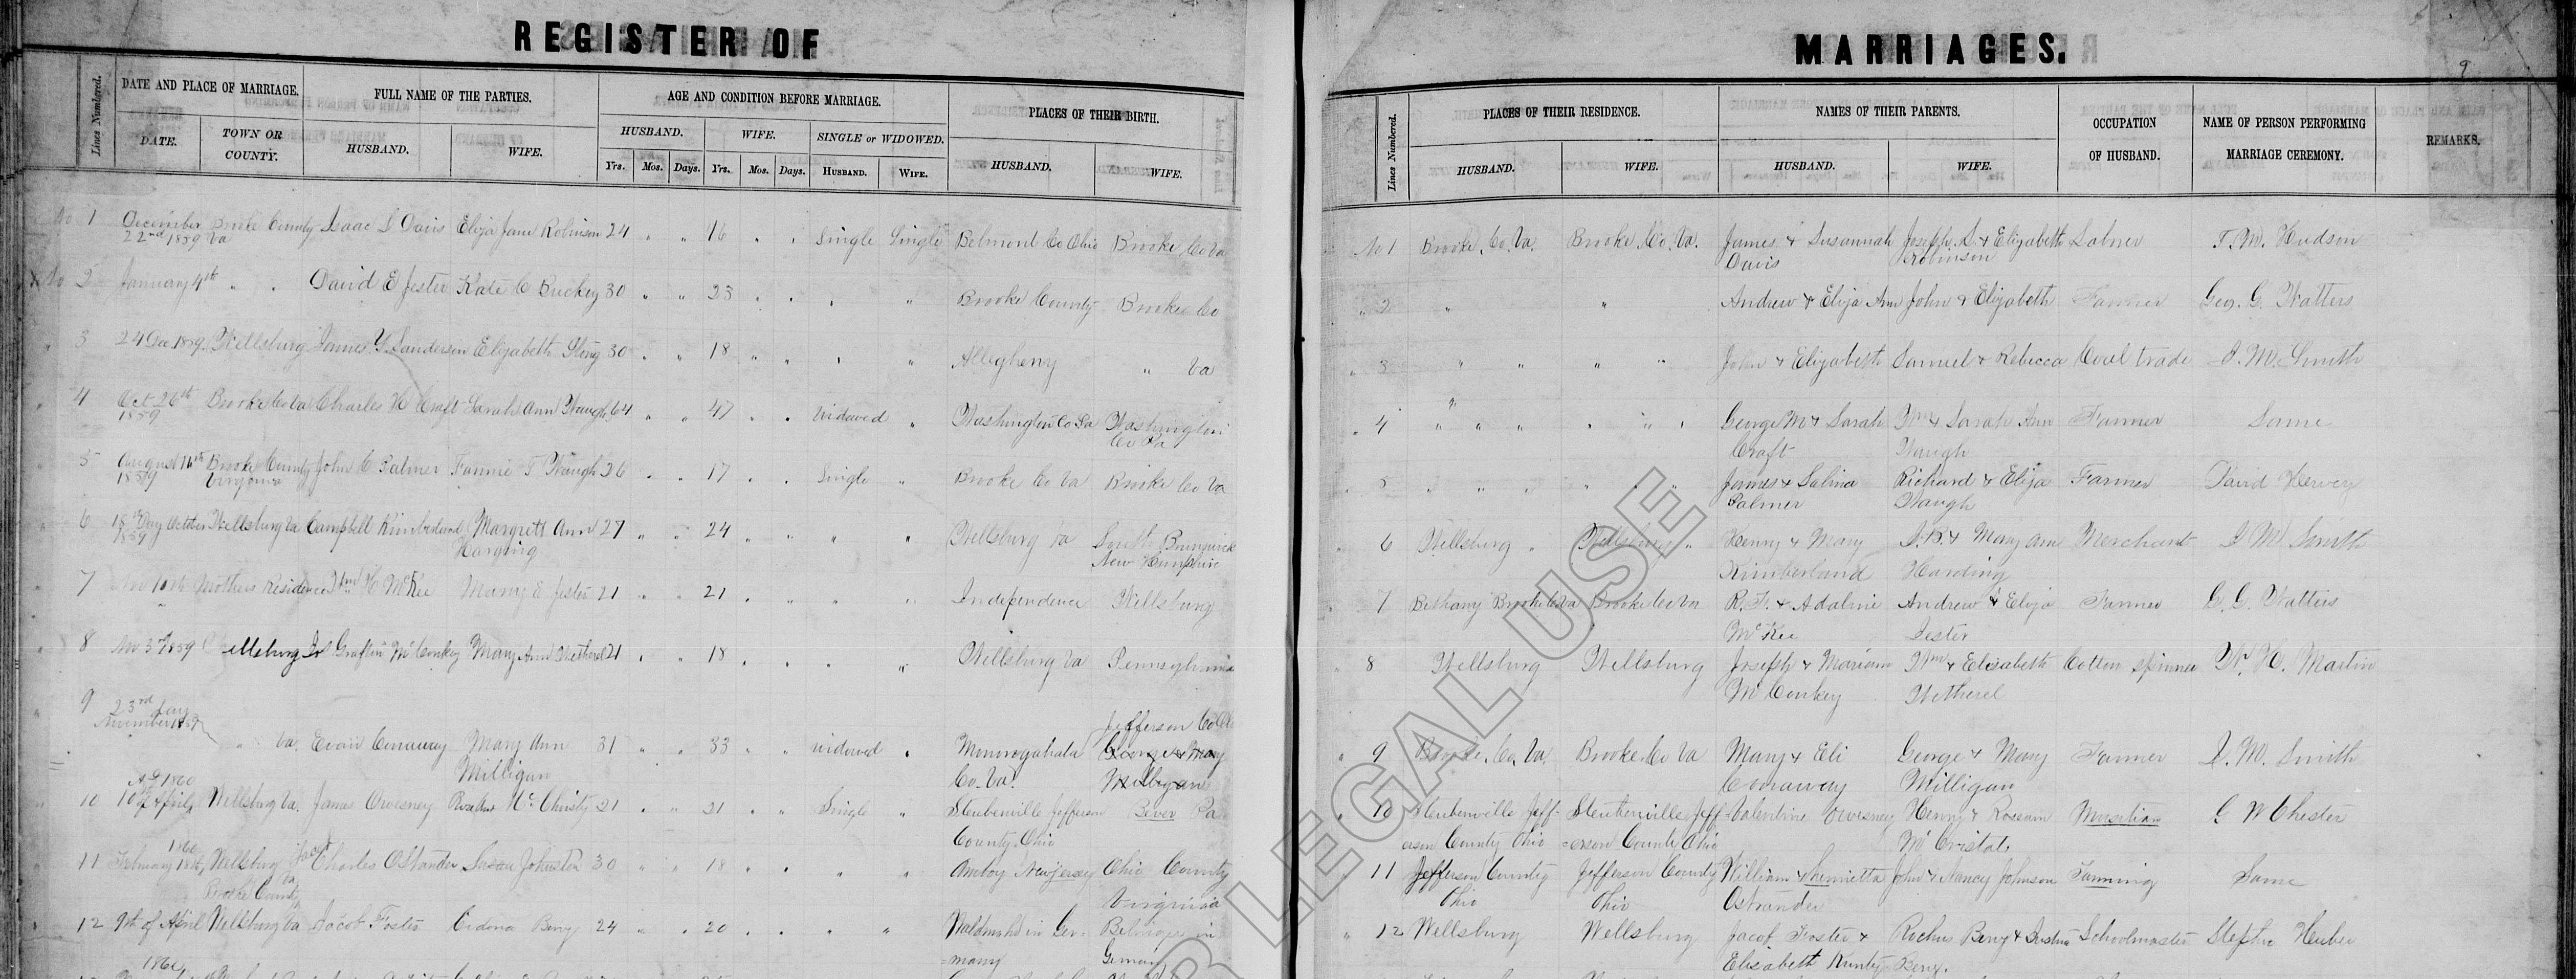 REGISTER OF MARRIAGES.
9
Lines Numbered.
DATE AND PLACE OF MARRIAGE.
FULL NAME OF THE PARTIES.
AGE AND CONDITION BEFORE MARRIAGE.
PLACES OF THEIR BIRTH.
DATE.
TOWN OR COUNTY.
HUSBAND.
WIFE.
HUSBAND.
WIFE.
SINGLE or WIDOWED.
HUSBAND.
WIFE.
Yrs. Mos. Days. Yrs. Mos. Days. HUSBAND. WIFE.
Lines Numbered.
PLACES OF THEIR RESIDENCE.
NAMES OF THEIR PARENTS.
OCCUPATION OF HUSBAND.
NAME OF PERSON PERFORMING MARRIAGE CEREMONY.
REMARKS.
HUSBAND.
WIFE.
HUSBAND.
WIFE.
No 1 December Brooke County Isaac S Davis Eliza Jane Robinson 24 " " 16 " " Single Single Belmont Co Ohio Brooke Co Va
22nd 1859 Va
X No 2 January 4th " " David E Jester Kate C Buckey 30 " " 23 " " " " Brooke County Brooke Co
" 3 24 Dec 1859 Wellsburg James Y Sanderson Elizabeth Stong 30 " " 18 " " " " Allegheny " Va
" 4 Oct 26th Brooke Co Va Charles H Craft Sarah Ann Waugh 64 " " 47 " " Widowed " Washington Co Pa Washington
1859 Co Pa
" 5 August 16th Brooke County John C Palmer Fannie T Waugh 26 " " 17 " " Single " Brooke Co Va Brooke Co Va
1859 Virginia
" 6 18th Day October Wellsburg Va Campbell Kimberland Margrett Ann 27 " " 24 " " " " Wellsburg Va South
1859 Harding New Hampshire
" 7 Nov 10th Mothers Residence Wm H McKee Mary E Jester 21 " " 21 " " " " Independence Wellsburg
" 8 Nov 3rd 1859 ellsburg Grafton McConkey Mary Ann Wetherel 21 " " 18 " " " " Wellsburg Va Pennsylvania
" 9 23rd day
November 1859 Jefferson Co
" Va. Evan Conaway Mary Ann 31 " " 33 " " widowed " Monongahala George & Mary
Milligan Co. Va. Milligan
AD 1860
" 10 10th of April Wellsburg Va. James McChristy 21 " " 21 " " Single " Steubenville Jefferson Bever Pa
County Ohio
1860
" 11 February 18th, Wellsburg Charles OStander Susan Johnston 30 " " 18 " " " " Amboy New jersey Ohio County
Brooke County Virginia
" 12 9th of April Wellsburg Va Jacob Foster Cidona Beny 24 " " 20 " " " " in Ger- in
1860 many Germany
No 1 Brooke, Co, Va. Brooke, Co, Va. James & Susannah Joseph S. & Elizabeth Labner T. M. Hudson
Davis Robinson
" 2 " " Andrew & Eliza Ann John & Elizabeth Farmer Geo. G. Walters
" 3 " " " " John & Elizabeth Samuel & Rebecca Coal trade I. M. Smith
" 4 " " " " " " George M & Sarah Wm & Sarah Ann Farmer Same
Craft Waugh
" 5 " " " " " " James & Salina Richard & Eliza Farmer David Hervey
Palmer Waugh
" 6 Wellsburg " Wellsburg " Henry & Mary & Mary Ann Merchant I M Smith
Kimberland Harding
" 7 Bethany Brooke Co Va Brooke Co Va R. T. & Adaline Andrew & Eliza Farmer G. G. Walters
McKee Jester
" 8 Wellsburg Wellsburg Joseph & Mariam Wm & Elisabeth Cotton spinner W. H. Martin
McConkey Wetherel
" 9 Brooke, Co, Va, Brooke Co Va Mary & Eli George & Mary Farmer I. M. Smith
Conaway Milligan
" 10 Steubenville Jeff- Steubenville Jeff- Valentine Henry & Rosean Musitian G W Chester
erson County Ohio -erson County Ohio McCristal
" 11 Jefferson County Jefferson County William & Henrietta John & Nancy Johnson Tanning Same
Ohio Ohio Ostrander
" 12 Wellsburg Wellsburg Jacob Foster & Rochus Beny & Schoolmaster Huber
Elisabeth Kuntz Beny.
R LEGAL USE